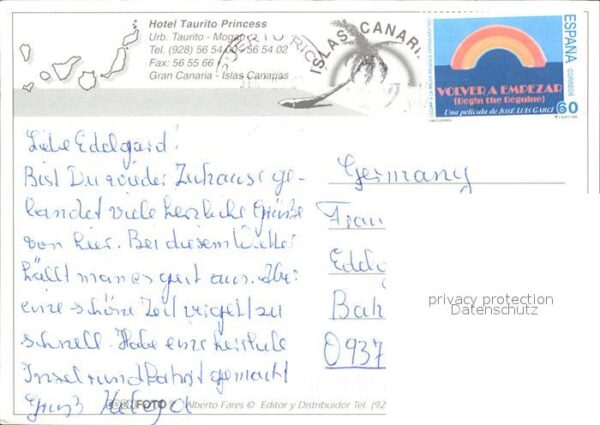 Hotel Taurito Princess
Urb. Taurito - Mogan
Tel. (928) 56 54 56 54 02
Fax: 56 55 66
Gran Canaria - Islas Canarias
ISLAS CANARI
ESPAÑA
CORREOS
VOLVER A EMPEZAR
(Begin the Beguine)
Una película de JOSÉ LUIS GARCI
60
Liebe Edelgard!
Bist Du wieder Zuhause ge-
landet viele herzliche Grüße
von hier. Bei diesem Wetter
hällt man es gut aus. Aber
eine schöne Zeit vergeht zu
schnell. Habe eine herrliche
Inselrundfahrt gemacht
Gruß Helga
Germany
Frau
Edelg
Bah
0937
privacy protection
Datenschutz
FOTO Alberto Fares © Editor y Distribuidor Tel. (92